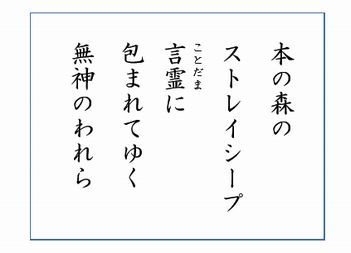 本の森の
ストレイシープ
ことだま
言霊に
包まれてゆく
無神のわれら